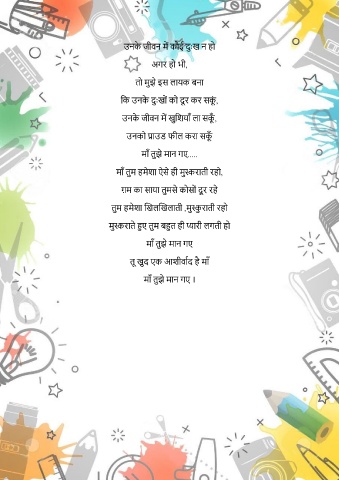 उनके जीवन में कोई दुःख न हो
अगर हो भी,
तो मुझे इस लायक बना
कि उनके दुःखों को दूर कर सकूं,
उनके जीवन में खुशियाँ ला सकूँ,
उनको प्राउड फील करा सकूँ
माँ तुझे मान गए.....
माँ तुम हमेशा ऐसे ही मुस्कराती रहो,
ग़म का साया तुमसे कोसों दूर रहे
तुम हमेशा खिलखिलाती ,मुस्कुराती रहो
मुस्कराते हुए तुम बहुत ही प्यारी लगती हो
माँ तुझे मान गए
तू खुद एक आशीर्वाद है माँ
माँ तुझे मान गए ।